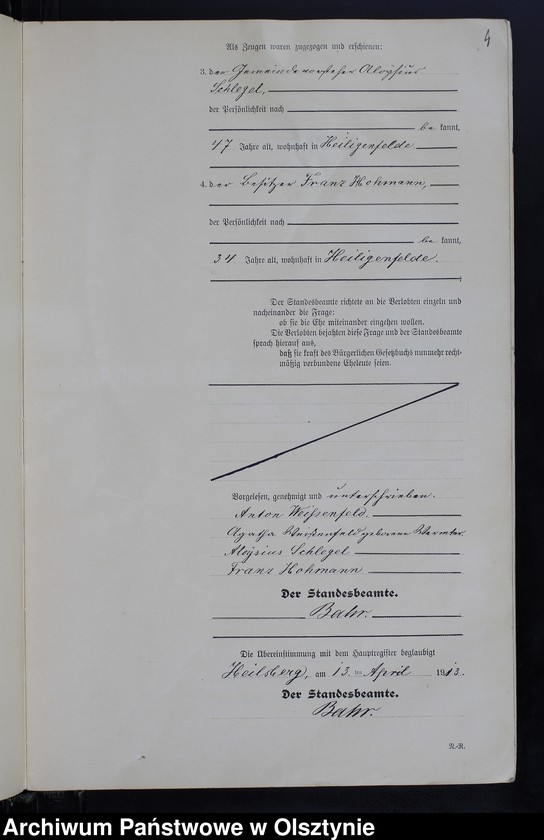 4
Als Zeugen waren zugezogen und erschienen:
3. der Gemeindevorsteher Aloysius
Schlegel,
der Persönlichkeit nach
be kannt,
47 Jahre alt, wohnhaft in Heiligenfelde
4. der Besitzer Franz Hohmann,
der Persönlichkeit nach
be kannt,
34 Jahre alt, wohnhaft in Heiligenfelde.
Der Standesbeamte richtete an die Verlobten einzeln und
nacheinander die Frage:
ob sie die Ehe miteinander eingehen wollen.
Die Verlobten bejahten diese Frage und der Standesbeamte
sprach hierauf aus,
daß sie kraft des Bürgerlichen Gesetzbuchs nunmehr recht-
mäßig verbundene Eheleute seien.
Vorgelesen, genehmigt und unterschrieben.
Anton Weißenfeld.
Agatha Weißenfeld geborene Wermter.
Aloysius Schlegel
Franz Hohmann
Der Standesbeamte.
Bahr.
Die Übereinstimmung mit dem Hauptregister beglaubigt
Heilsberg, am 13. ten April 1913.
Der Standesbeamte.
Bahr.
N.-R.
Archiwum Państwowe w Olsztynie